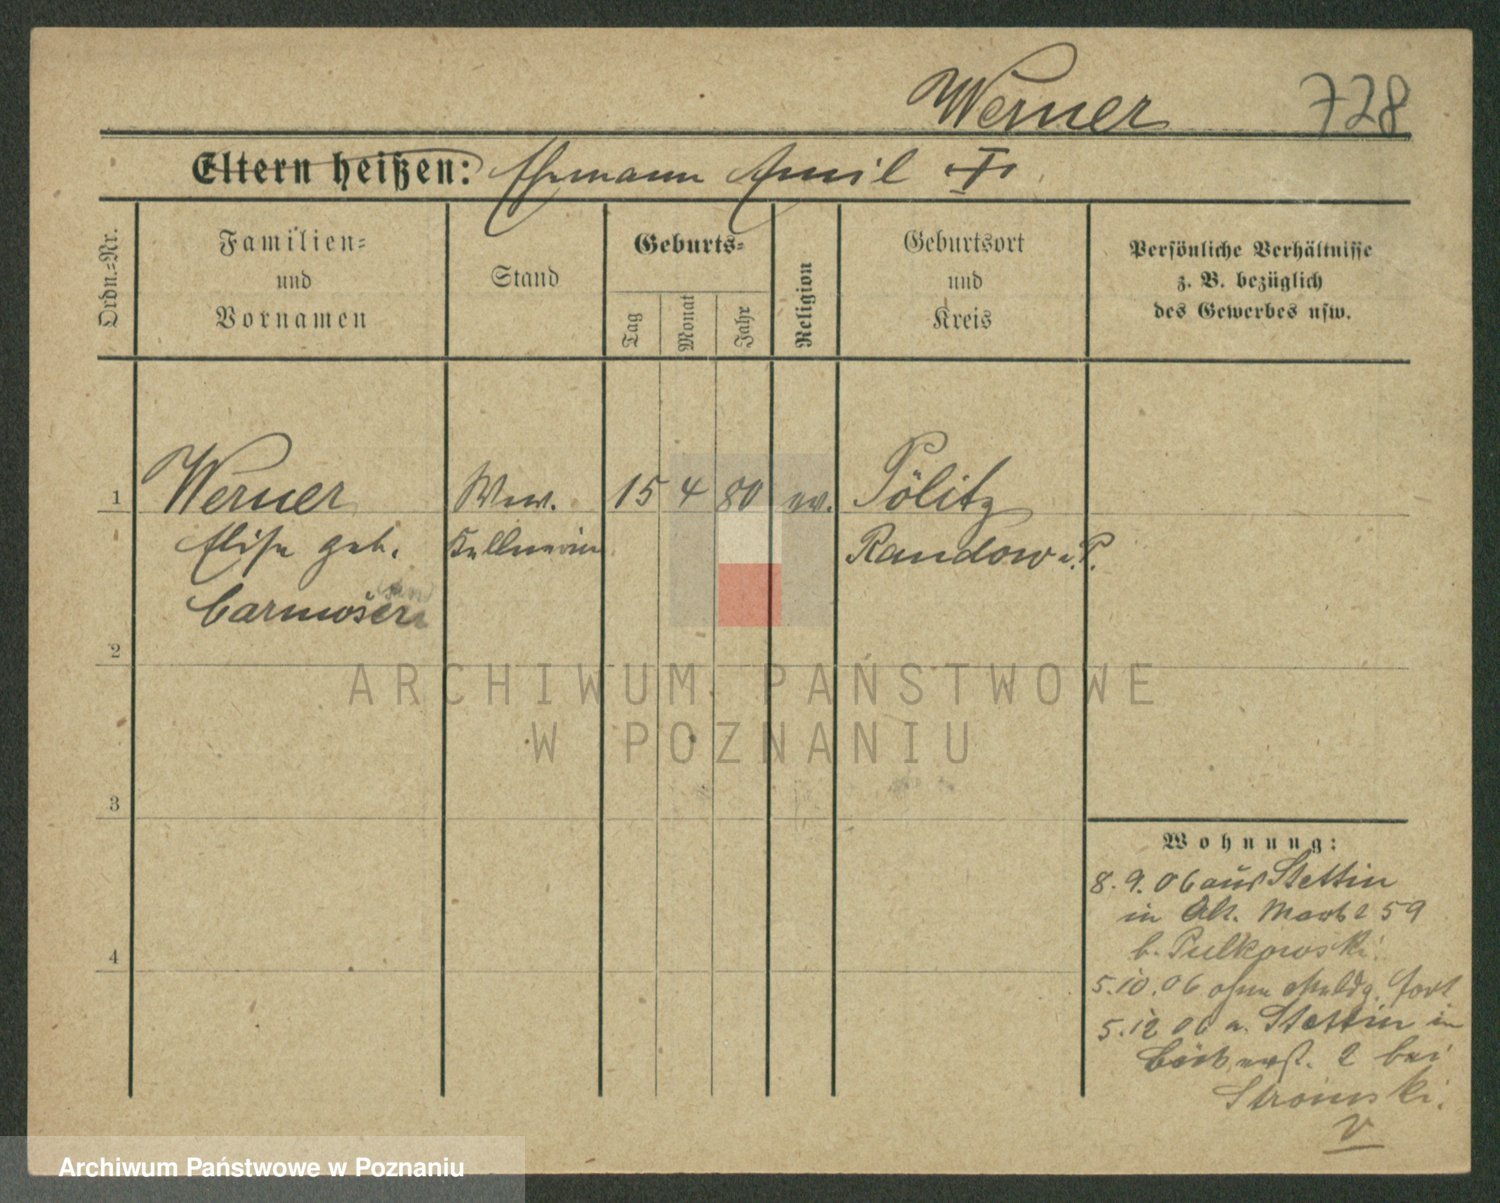 Werner 728
Eltern heißen: Ehmann Emil †
Ordn.-Nr.
Familien-
und
Vornamen
Stand
Geburts-
Tag
Monat
Jahr
Religion
Geburtsort
und
Kreis
Persönliche Verhältnisse
z. B. bezüglich
des Gewerbes usw.
1 Werner Wwe. 15 4 80 ev. Pölitz
Elise geb. Kellnerin Randow i. P.
2
3
4
Wohnung:
8.9.06 aus Stettin
in Alt. Markt 59
b. Pulkowski
5.10.06 ohne Meldg. fort
5.12 06 a. Stettin in
2 bei
Stromski.
ARCHIWUM PAŃSTWOWE
W POZNANIU
Archiwum Państwowe w Poznaniu